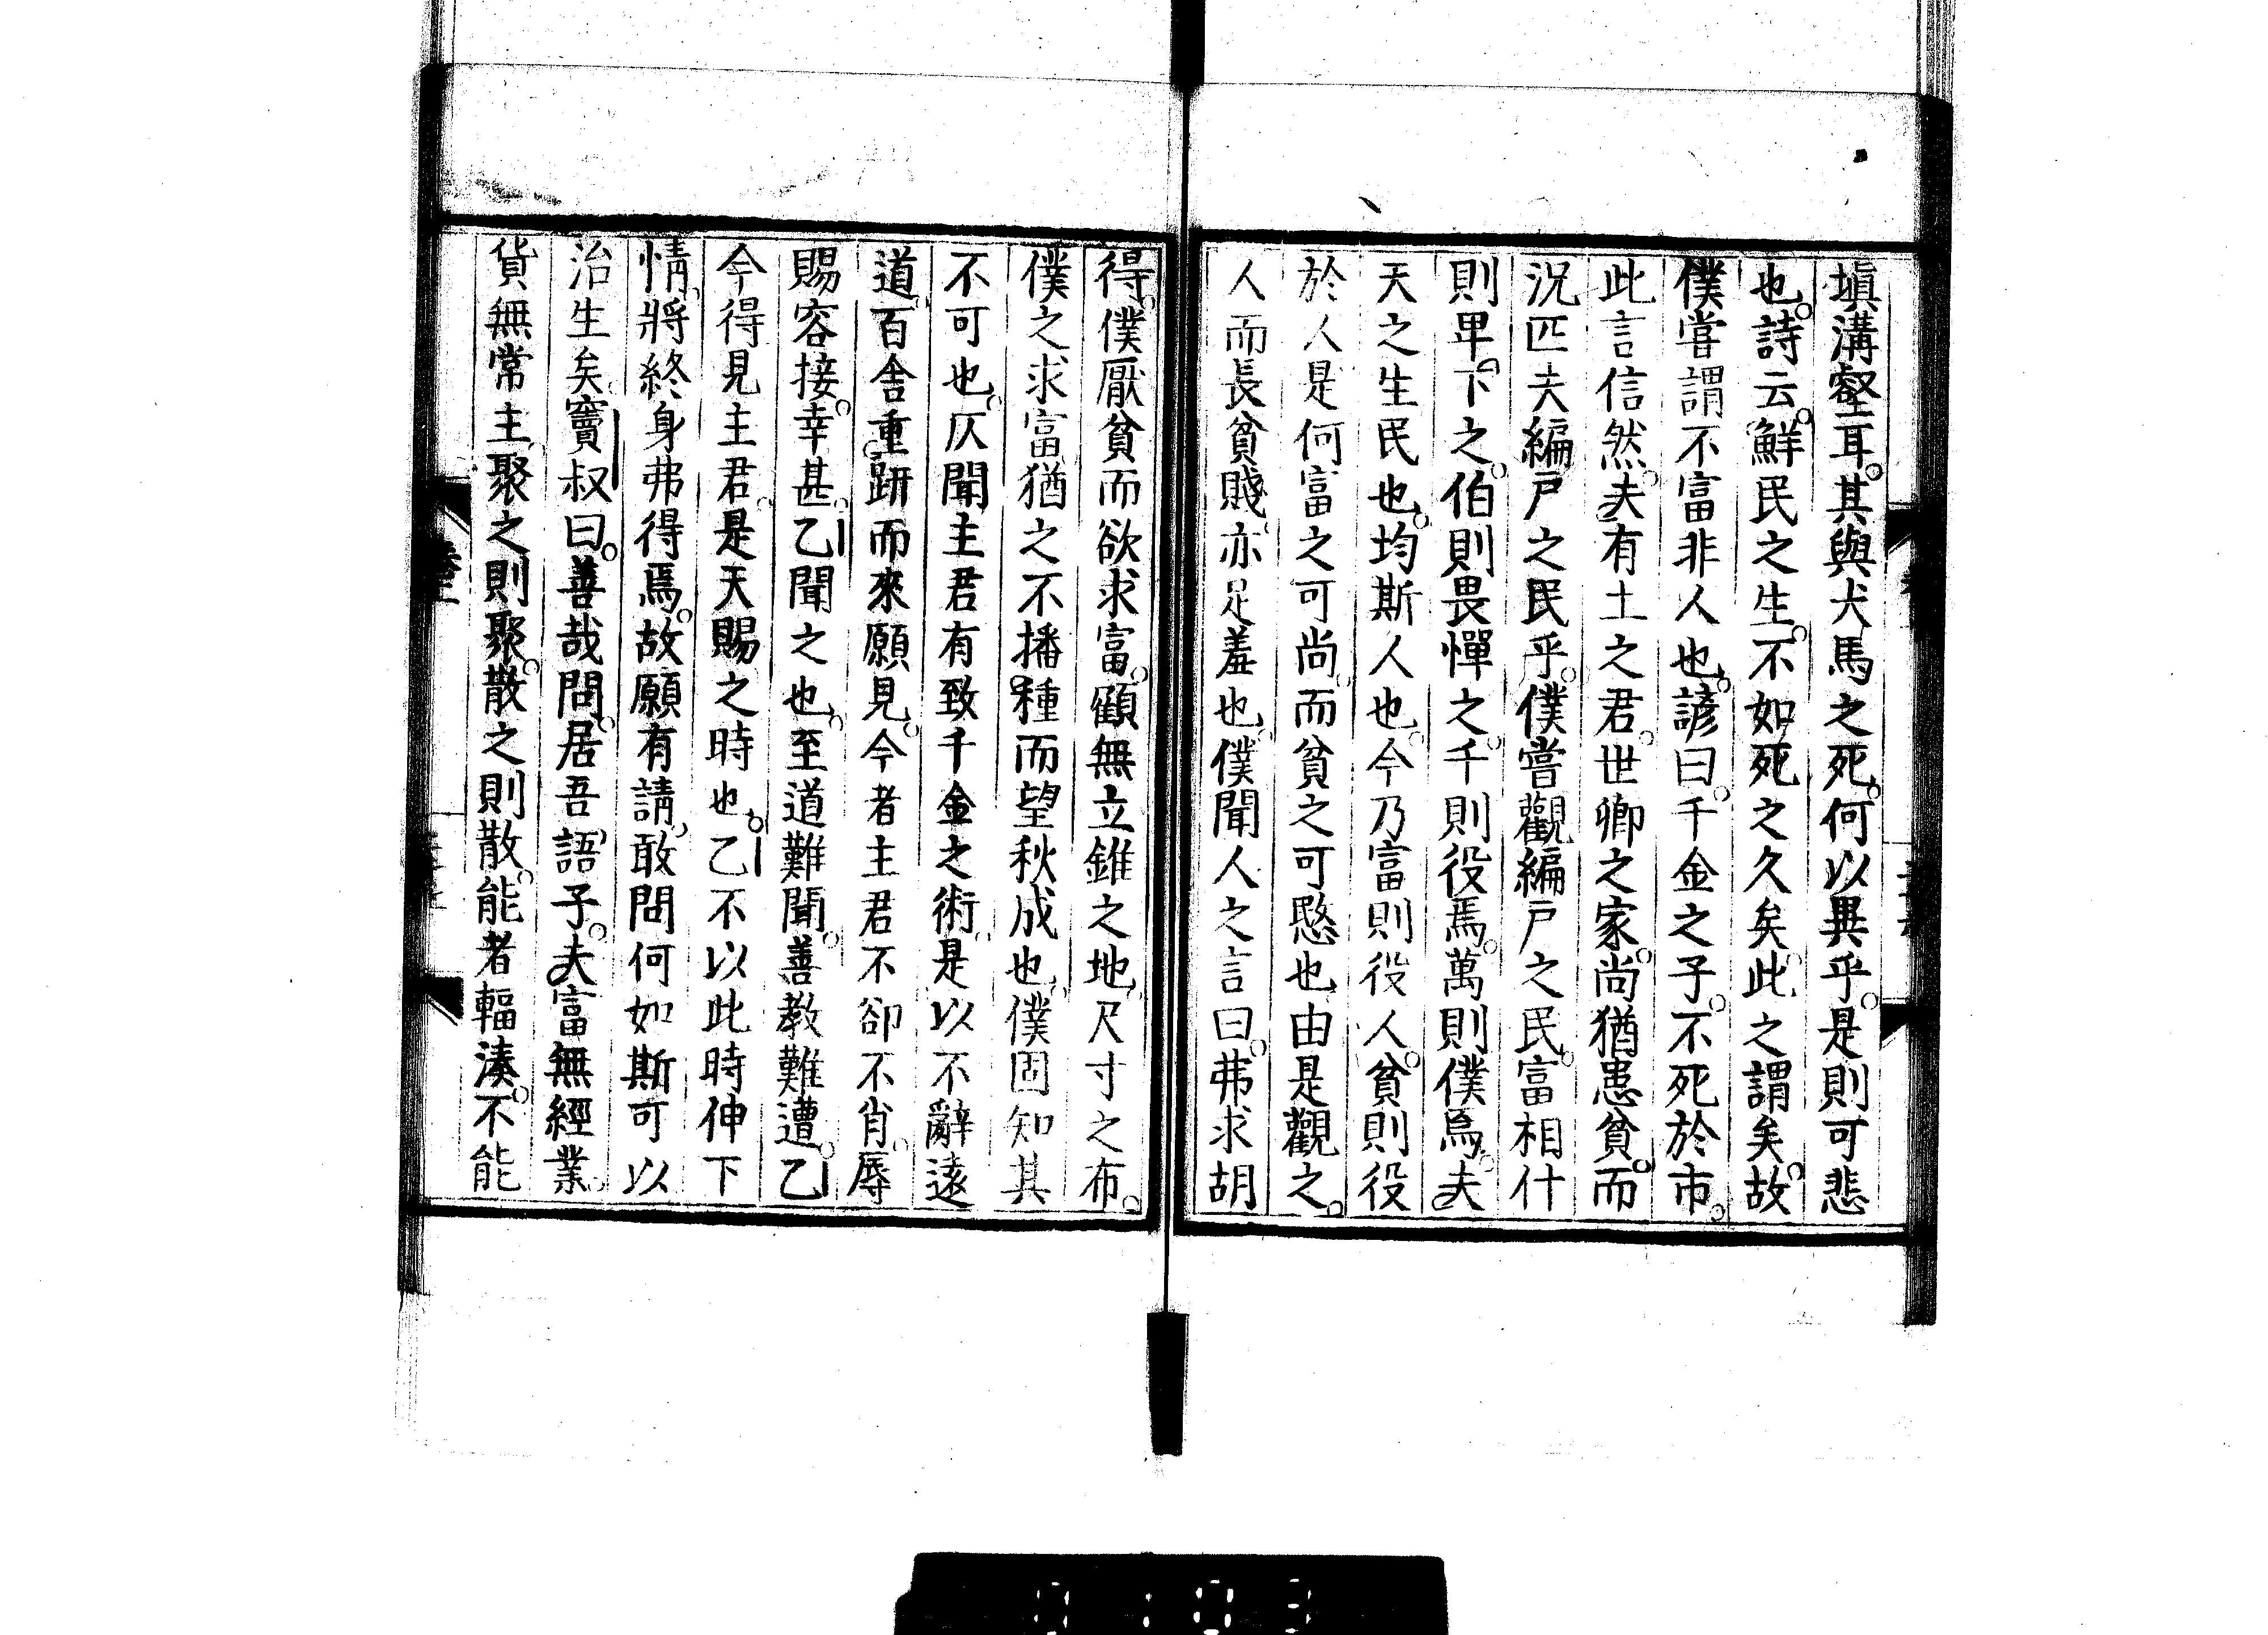 塡溝壑耳。其與犬馬之死。何以異乎。是則可悲
也。詩云。鮮民之生。不如死之久矣。此之謂矣。故
僕嘗謂不富非人也。諺曰。千金之子。不死於市。
此言信然。夫有土之君。世卿之家。尚猶患貧。而
況匹夫編戸之民乎。僕嘗觀編戸之民。富相什
則卑下之。伯則畏憚之。千則役焉。萬則僕焉。夫
天之生民也。均斯人也。今乃富則役人。貧則役
於人。是何富之可尚。而貧之可愍也。由是觀之。
人而長貧賤。亦足羞也。僕聞人之言曰。弗求胡
得。僕厭貧而欲求富。顧無立錐之地。尺寸之布。
僕之求富。猶之不播種而望秋成也。僕固知其
不可也。仄聞主君有致千金之術。是以不辭遠
道。百舍重趼而來願見。今者主君不卻不肖。辱
賜容接。幸甚。乙聞之也。至道難聞。善教難遭。乙
今得見主君。是天賜之時也。乙不以此時伸下
情。將終身弗得焉。故願有請。敢問何如斯可以
治生矣。竇叔曰。善哉問。居吾語子。夫富無經業。
貨無常主。聚之則聚。散之則散。能者輻湊。不能